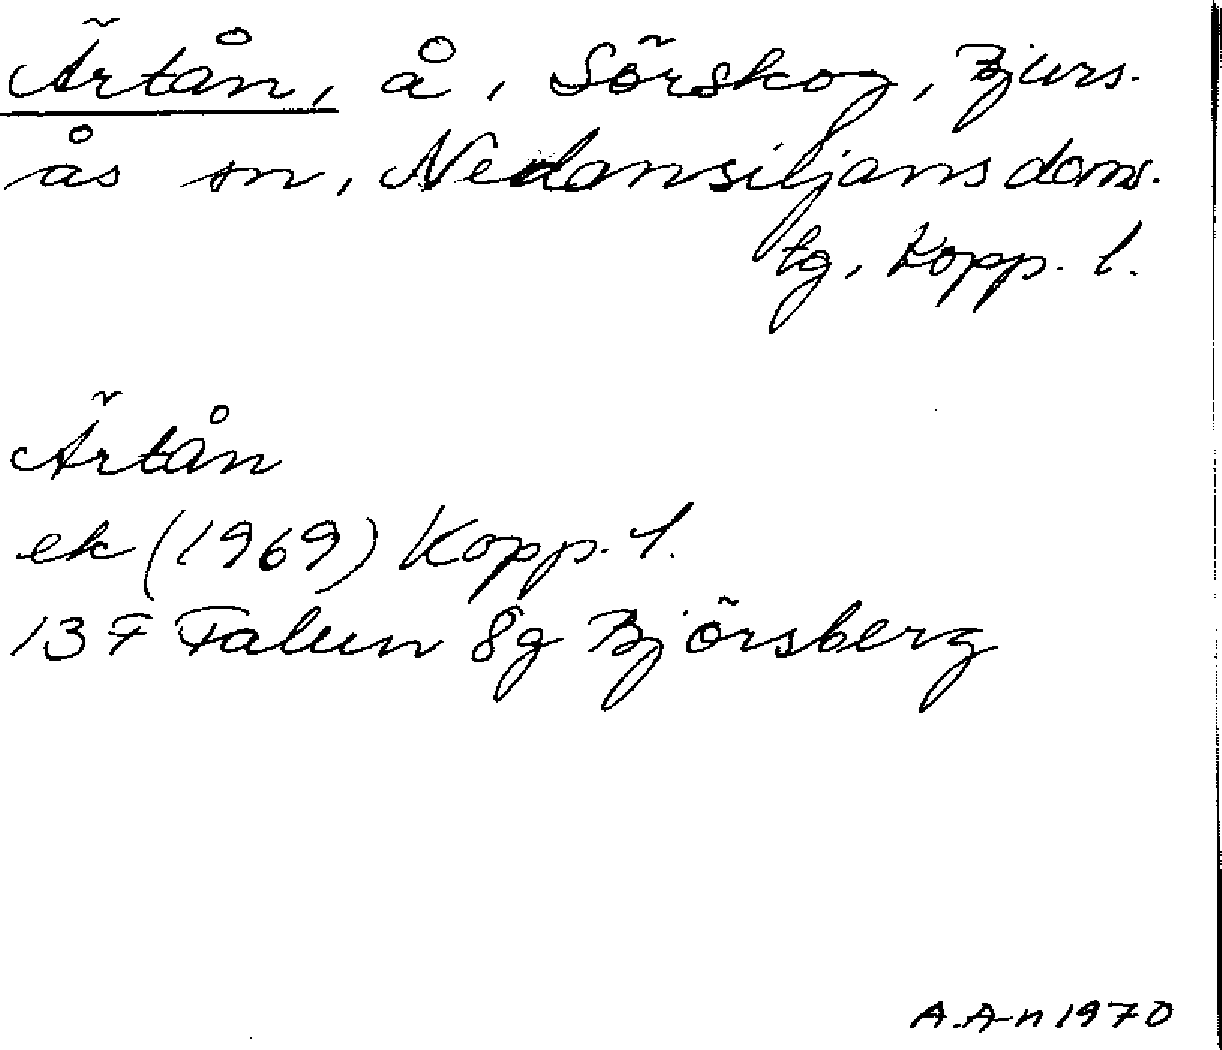 Ärtån, å, Sörskog, Bjurs-
ås sn, Nedansiljans doms.
tg, Kopp. l.
Ärtån
ek (1969) Kopp. l.
13 F Falun 8g Björsberg
A.A-n 1970